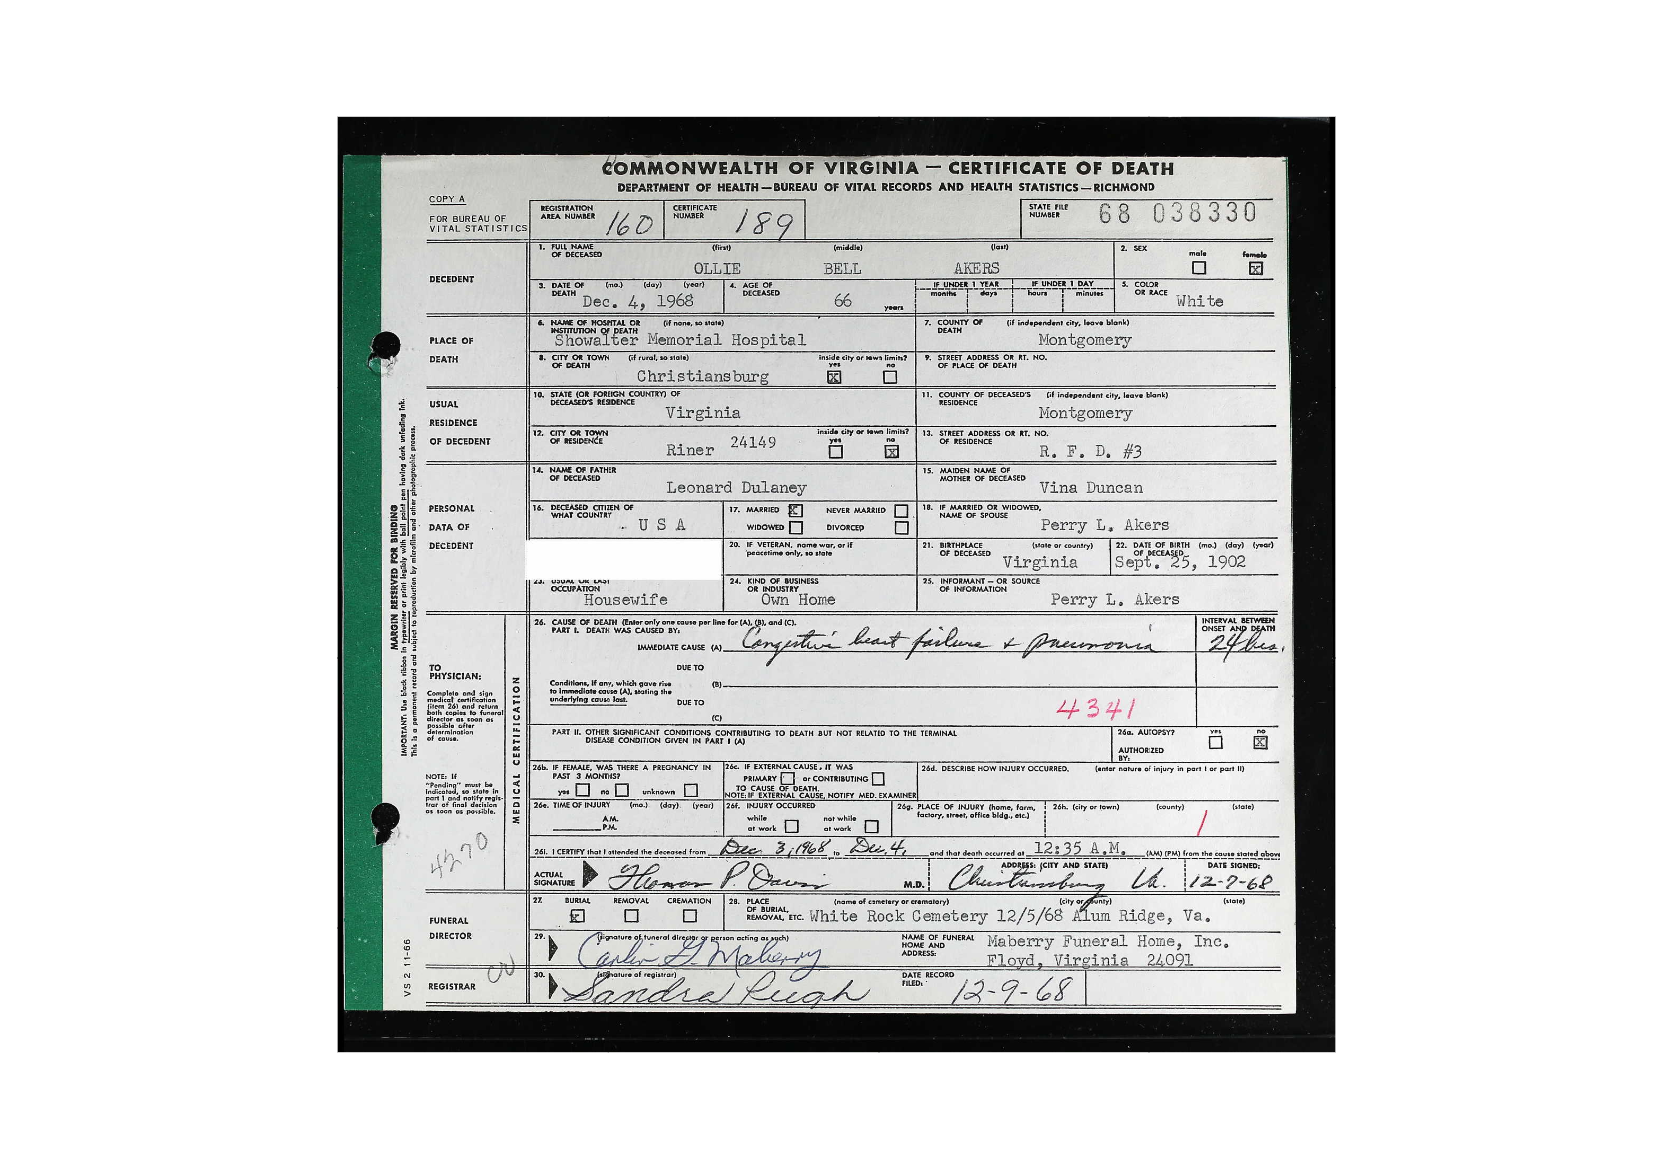 COMMONWEALTH OF VIRGINIA — CERTIFICATE OF DEATH
DEPARTMENT OF HEALTH—BUREAU OF VITAL RECORDS AND HEALTH STATISTICS—RICHMOND
COPY A
FOR BUREAU OF
VITAL STATISTICS
REGISTRATION
AREA NUMBER 160
CERTIFICATE
NUMBER 189
STATE FILE
NUMBER 68 038330
DECEDENT
1. FULL NAME (first) (middle) (last)
OF DECEASED
OLLIE BELL AKERS
2. SEX
male female
x
3. DATE OF (mo.) (day) (year)
DEATH Dec. 4, 1968
4. AGE OF
DECEASED 66 years
IF UNDER 1 YEAR IF UNDER 1 DAY
months days hours minutes
5. COLOR
OR RACE White
PLACE OF
DEATH
6. NAME OF HOSPITAL OR (if none, so state)
INSTITUTION OF DEATH
Showalter Memorial Hospital
7. COUNTY OF (if independent city, leave blank)
DEATH
Montgomery
8. CITY OR TOWN (if rural, so state) inside city or town limits?
OF DEATH yes no
Christiansburg x
9. STREET ADDRESS OR RT. NO.
OF PLACE OF DEATH
USUAL
RESIDENCE
OF DECEDENT
10. STATE (OR FOREIGN COUNTRY) OF
DECEASED'S RESIDENCE
Virginia
11. COUNTY OF DECEASED'S (if independent city, leave blank)
RESIDENCE
Montgomery
12. CITY OR TOWN inside city or town limits?
OF RESIDENCE yes no
Riner 24149 x
13. STREET ADDRESS OR RT. NO.
OF RESIDENCE
R. F. D. #3
PERSONAL
DATA OF
DECEDENT
14. NAME OF FATHER
OF DECEASED
Leonard Dulaney
15. MAIDEN NAME OF
MOTHER OF DECEASED
Vina Duncan
16. DECEASED CITIZEN OF
WHAT COUNTRY
U S A
17. MARRIED x NEVER MARRIED
WIDOWED DIVORCED
18. IF MARRIED OR WIDOWED,
NAME OF SPOUSE
Perry L. Akers
20. IF VETERAN, name war, or if
peacetime only, so state
21. BIRTHPLACE (state or country)
OF DECEASED
Virginia
22. DATE OF BIRTH (mo.) (day) (year)
OF DECEASED
Sept. 25, 1902
23. USUAL OR LAST
OCCUPATION
Housewife
24. KIND OF BUSINESS
OR INDUSTRY
Own Home
25. INFORMANT — OR SOURCE
OF INFORMATION
Perry L. Akers
MARGIN RESERVED FOR BINDING
IMPORTANT: Use black ribbon in typewriter or print legibly with ball point pen having dark unfading ink.
This is a permanent record and subject to reproduction by microfilm and other photographic process.
TO
PHYSICIAN:
Complete and sign
medical certification
(item 26) and return
both copies to funeral
director as soon as
possible after
determination
of cause.
NOTE: If
"Pending" must be
indicated, so state in
part I and notify regis-
trar of final decision
as soon as possible.
4270
MEDICAL CERTIFICATION
26. CAUSE OF DEATH (Enter only one cause per line for (A), (B), and (C).
PART I. DEATH WAS CAUSED BY:
IMMEDIATE CAUSE (A) Congestive heart failure & pneumonia
INTERVAL BETWEEN
ONSET AND DEATH
24 hrs.
DUE TO
Conditions, if any, which gave rise
to immediate cause (A), stating the
underlying cause last.
(B)
DUE TO
(C)
4341
PART II. OTHER SIGNIFICANT CONDITIONS CONTRIBUTING TO DEATH BUT NOT RELATED TO THE TERMINAL
DISEASE CONDITION GIVEN IN PART I (A)
26a. AUTOPSY? yes no
x
AUTHORIZED
BY:
26b. IF FEMALE, WAS THERE A PREGNANCY IN
PAST 3 MONTHS?
yes no unknown
26c. IF EXTERNAL CAUSE, IT WAS
PRIMARY or CONTRIBUTING
TO CAUSE OF DEATH.
NOTE: IF EXTERNAL CAUSE, NOTIFY MED. EXAMINER
26d. DESCRIBE HOW INJURY OCCURRED. (enter nature of injury in part I or part II)
26e. TIME OF INJURY (mo.) (day) (year)
A.M.
P.M.
26f. INJURY OCCURRED
while not while
at work at work
26g. PLACE OF INJURY (home, farm,
factory, street, office bldg., etc.)
26h. (city or town) (county) (state)
26i. I CERTIFY that I attended the deceased from Dec 3, 1968 to Dec. 4, and that death occurred at 12:35 A.M. (AM) (PM) from the cause stated above
ACTUAL
SIGNATURE Thomas P. Davis M.D.
ADDRESS: (CITY AND STATE)
Christiansburg Va.
DATE SIGNED:
12-7-68
FUNERAL
DIRECTOR
27. BURIAL REMOVAL CREMATION
x
28. PLACE (name of cemetery or crematory) (city or county) (state)
OF BURIAL,
REMOVAL, ETC. White Rock Cemetery 12/5/68 Alum Ridge, Va.
29. (signature of funeral director or person acting as such)
Carlin G. Maberry
NAME OF FUNERAL
HOME AND
ADDRESS:
Maberry Funeral Home, Inc.
Floyd, Virginia 24091
REGISTRAR
30. (signature of registrar)
Sandra Pugh
DATE RECORD
FILED: 12-9-68
VS 2 11-66